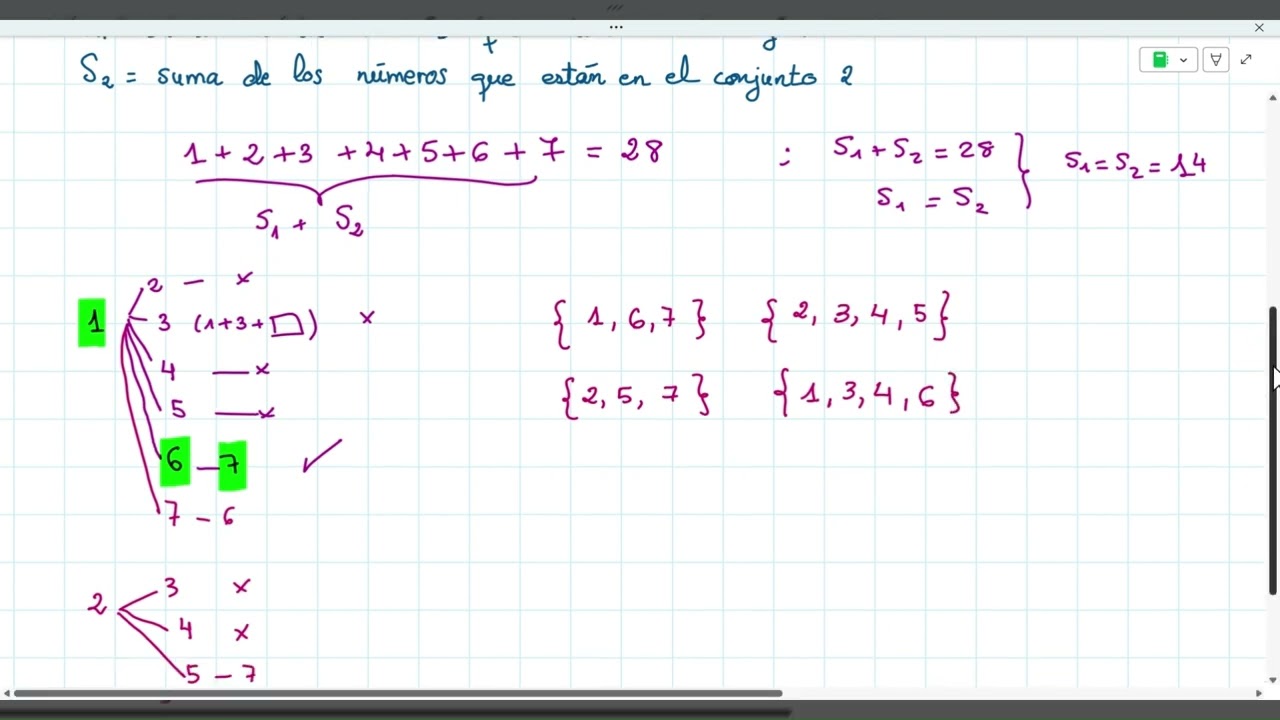 S₂ = suma de los números que están en el conjunto 2
1 + 2 + 3 + 4 + 5 + 6 + 7 = 28 : S₁ + S₂ = 28 } S₁ = S₂ = 14
S₁ = S₂
S₁ + S₂
2 — ×
1 3 (1+3+□) × { 1, 6, 7 } { 2, 3, 4, 5 }
4 — ×
{ 2, 5, 7 } { 1, 3, 4, 6 }
5 — ×
6 — 7 ✓
7 – 6
3 ×
2
4 ×
5 – 7